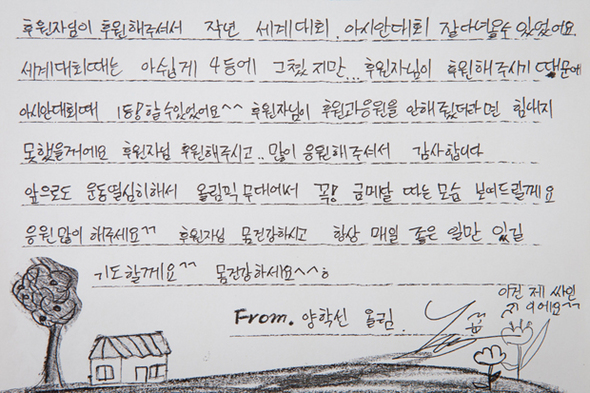 후원자님이 후원해주셔서 작년 세계대회, 아시안대회 잘다녀올수 있었어요.
세계대회때는 아쉽게 4등에 그쳤지만... 후원자님이 후원해주시기 때문에
아시안대회때 1등할수있었어요^^ 후원자님이 후원과응원을 안해줬더라면 힘내지
못했을거에요 후원자님 후원해주시고.. 많이 응원해주셔서 감사합니다
앞으로도 운동열심히해서 올림픽무대에서 꼭! 금메달 따는모습 보여드릴께요
응원많이 해주세요^^ 후원자님 몸건강하시고 항상 매일 좋은 일만 있길
기도할께요^^ 몸건강하세요^^ㅎ
이건 제 싸인
이에요^^
From. 양학선 올림.